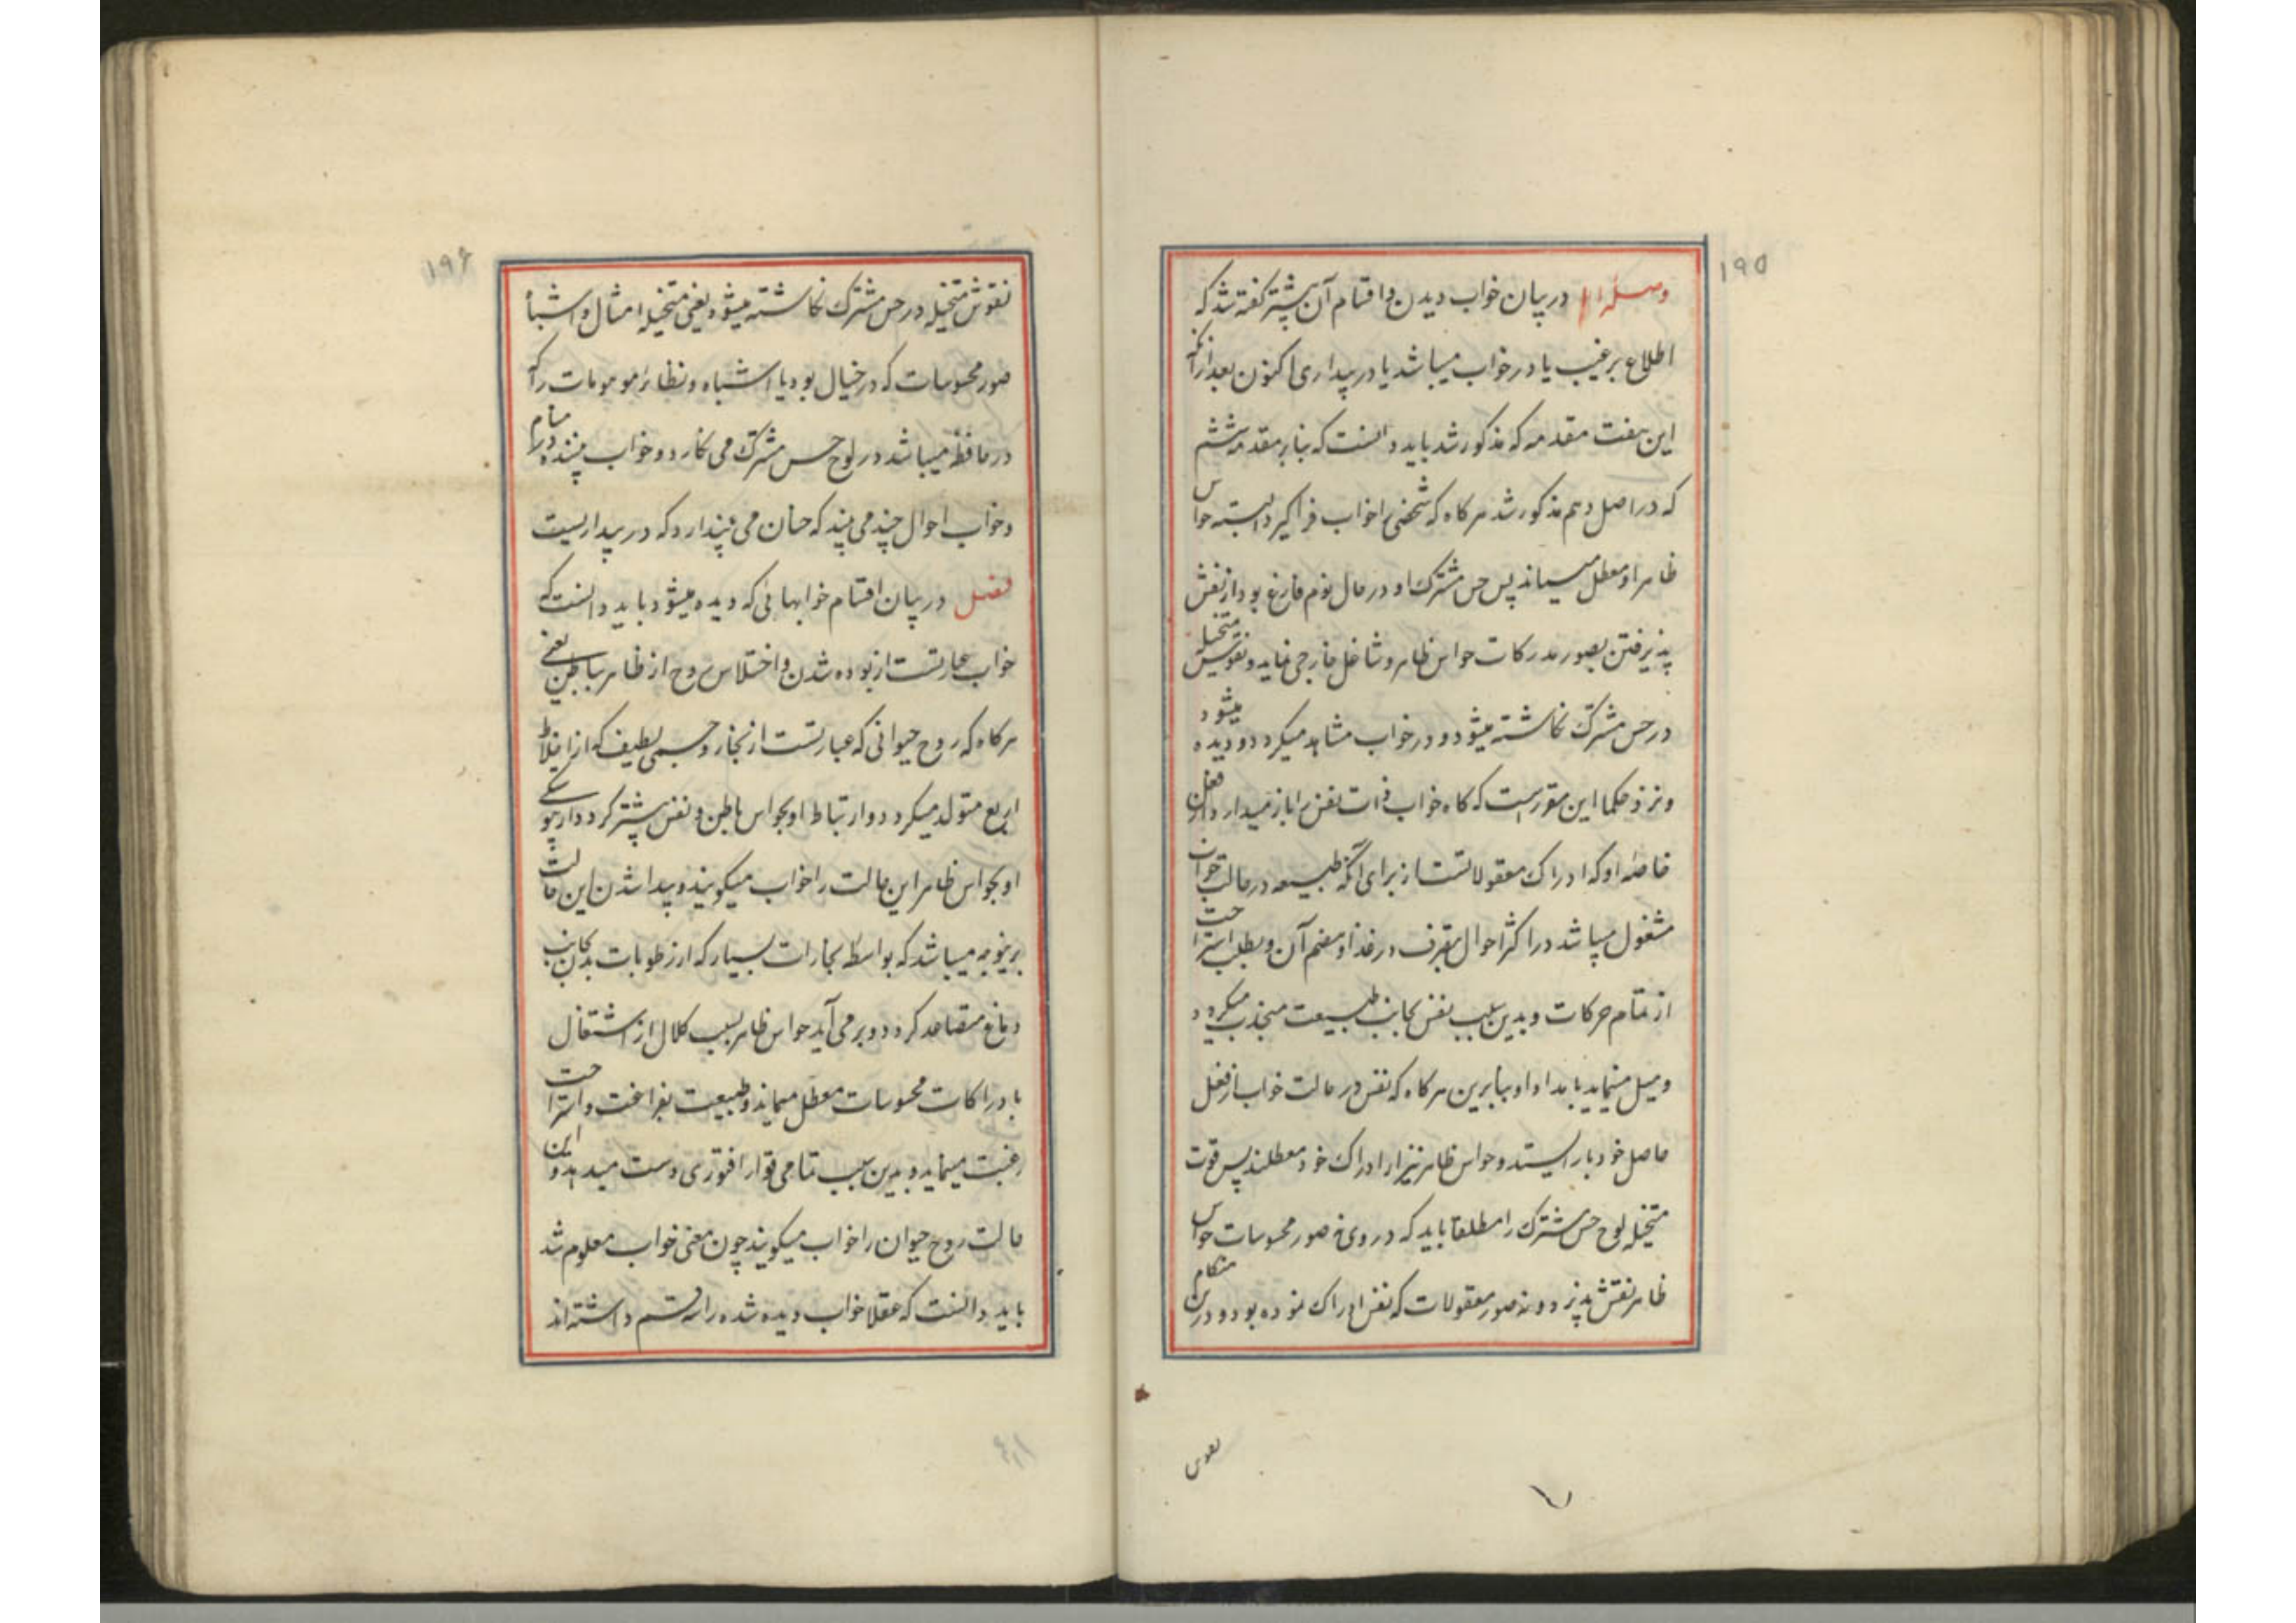 ۱۹۵
وصل در بیان خواب دیدن و اقسام آن پیشتر گفته شد که
اطلاع بر غیب یا در خواب میباشد یا در بیداری اکنون بعد از آنکه
این هفت مقدمه که مذکور شد باید دانست که بنابر مقدمه ششم
که در اصل دهم مذکور شد هرگاه که شخصی را خواب فراگیرد البته حواس
ظاهر او معطل میماند پس حس مشترک او در حال نوم فارغ بود از نقش
پذیرفتن بصور مدرکات حواس ظاهر و شاغل خارجی نماید و نقوش متخیله
در حس مشترک نگاشته میشود و در خواب مشاهد میگردد و دیده میشود
و نزد حکما این مقرر است که گاه خواب ذات نفس را باز میدارد از فعل
خاصه او که ادراک معقولاتست از برای آنکه طبیعه در حالت خواب
مشغول میباشد در اکثر احوال بتصرف در غذا و هضم آن و بطلب استراحت
از تمام حرکات و بدین سبب نفس بجانب طبیعت منجذب میگردد
و میل مینماید بامداد او بنابرین هرگاه که نفس در حالت خواب از فعل
حاصل خود باز ایستد و حواس ظاهر نیز از ادراک خود معطلند پس قوت
متخیله لوح حس مشترک را مطلقا یابد که در وی نه صور محسوسات حواس
ظاهر نقش پذیرد و نه صور معقولات که نفس ادراک نموده بود و درین هنگام
نقوش
۱۹۶
نقوش متخیله در حس مشترک نگاشته میشود یعنی متخیله امثال و اشباه
صور محسوسات که در خیال بود یا اشباه و نظائر موهومات را که
در حافظه میباشد در لوح حس مشترک می نگارد و خواب بیننده در منام
و خواب احوال چند می بیند که چنان می پندارد که در بیداریست
فصل در بیان اقسام خوابهائی که دیده میشود باید دانست که
خواب عبارتست از ربوده شدن و اختلاس روح از ظاهر بباطن یعنی
هرگاه که روح حیوانی که عبارتست از بخار و جسمی لطیف که از اخلاط
اربع متولد میگردد و ارتباط او بحواس باطن و نفس بیشتر گردد از
او بحواس ظاهر این حالت را خواب میگویند و پیدا شدن این حالت
برینوجه میباشد که بواسطه بخارات بسیار که از رطوبات بدن بجانب
دماغ متصاعد گردد و برمی آید حواس ظاهر بسبب کلال از اشتغال
بادراکات محسوسات معطل میماند و طبیعت بفراغت و استراحت
رغبت مینماید و بدین سبب تمامی قوا را فتوری دست میدهد و این
حالت روح حیوان را خواب میگویند چون معنی خواب معلوم شد
باید دانست که عقلا خواب دیده شده را سه قسم داشته اند